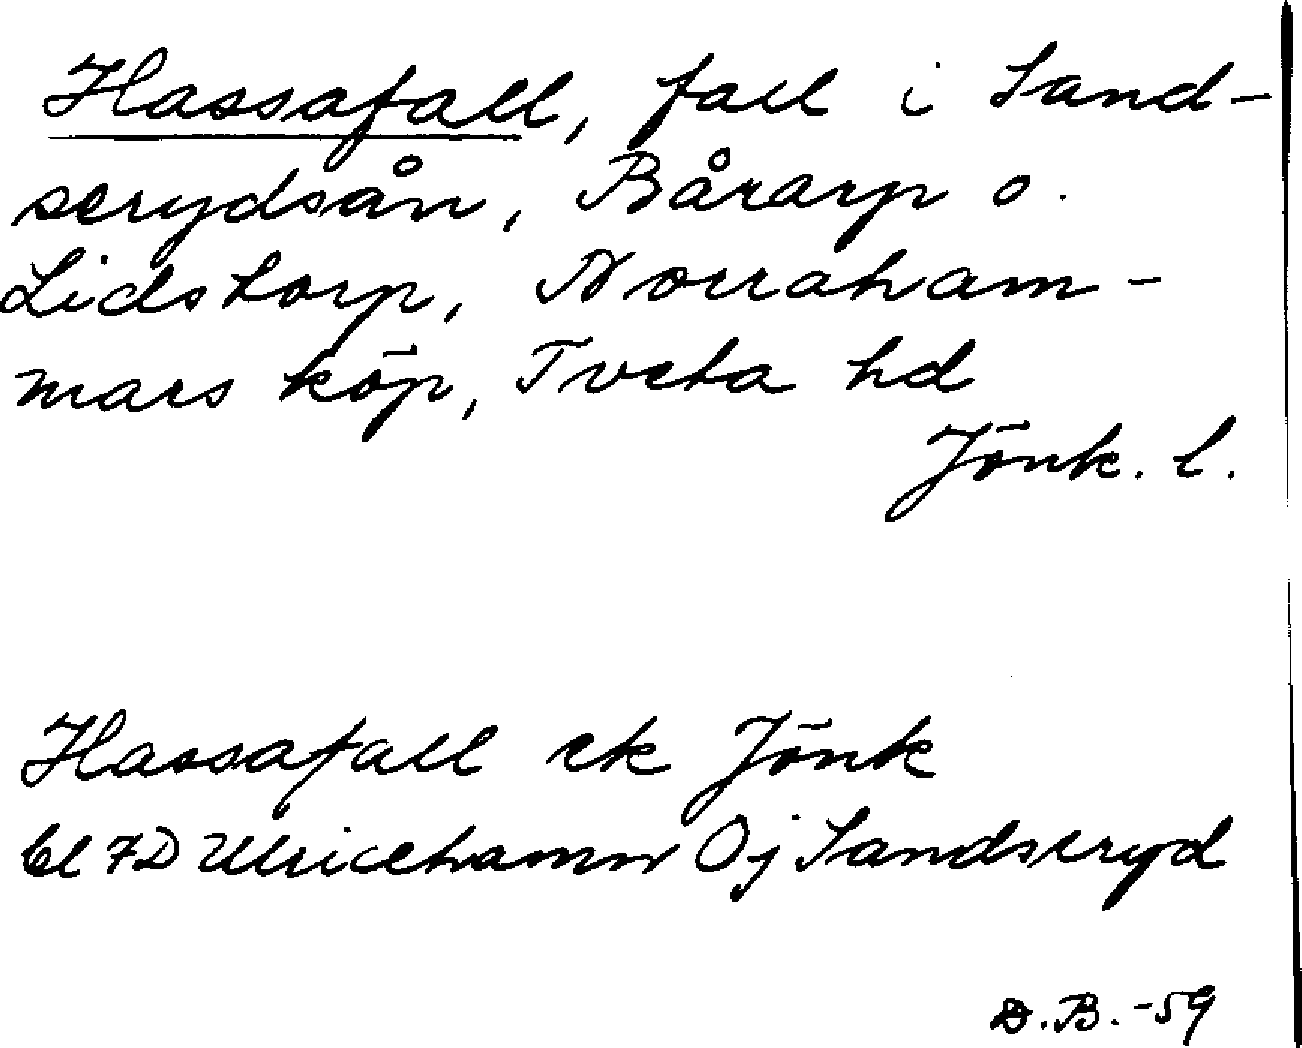 Hassafall, fall i Sand-
serydsån, Bårarp o.
Lidstorp, Norraham-
mars köp, Tveta hd
Jönk. l.
Hassafall ek Jönk
bl 7D Ulricehamn Öj Sandseryd
D.B.-59